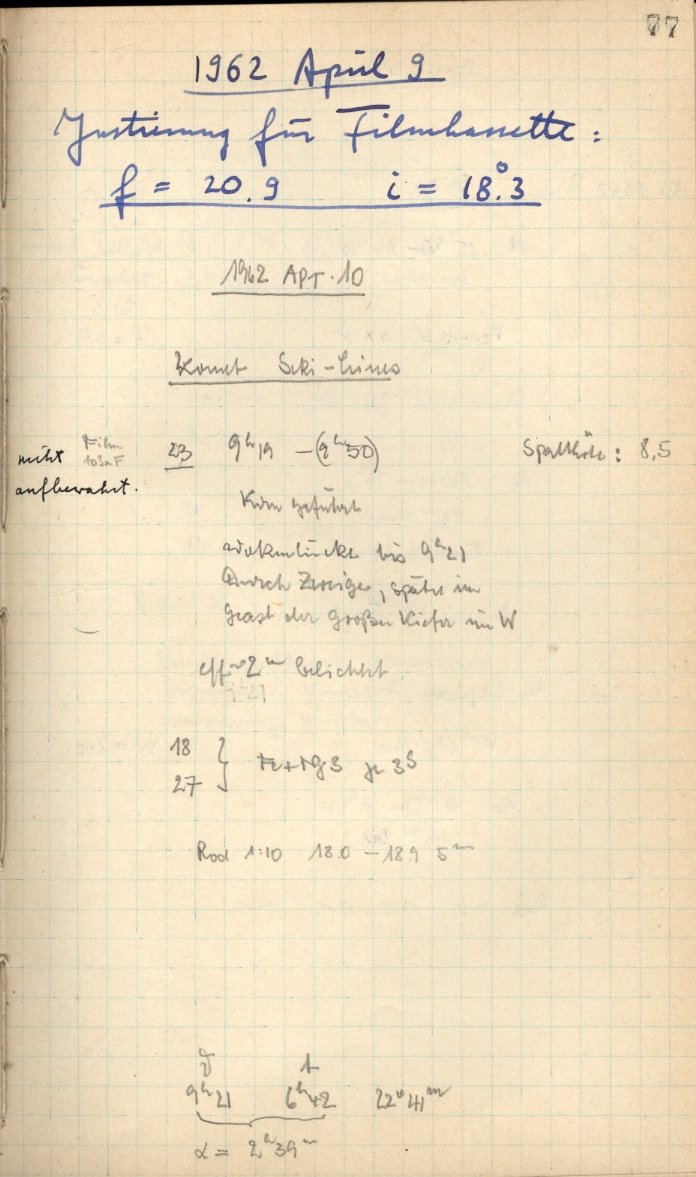 77
1962 April 9
Justierung für Filmkassette:
f = 20.9 i = 18°.3
1962 Apr. 10
Komet Seki-Lines
nicht aufbewahrt.
Film 103aF
23 9ʰ19 – (9ʰ50) Spalthöhe: 8,5
Kern geführt
Wolkenlücke bis 9ʰ21
Durch Zweige, später im
Geäst der großen Kiefer im W
eff ~ 2ᵐ belichtet
18
27 } Fe+Ng3 je 3ˢ
Rod 1:10 18.0 – 18.9 5ᵐ
ϑ t
9ʰ21 6ʰ42 22°41ᵐ
α = 2ʰ39ᵐ